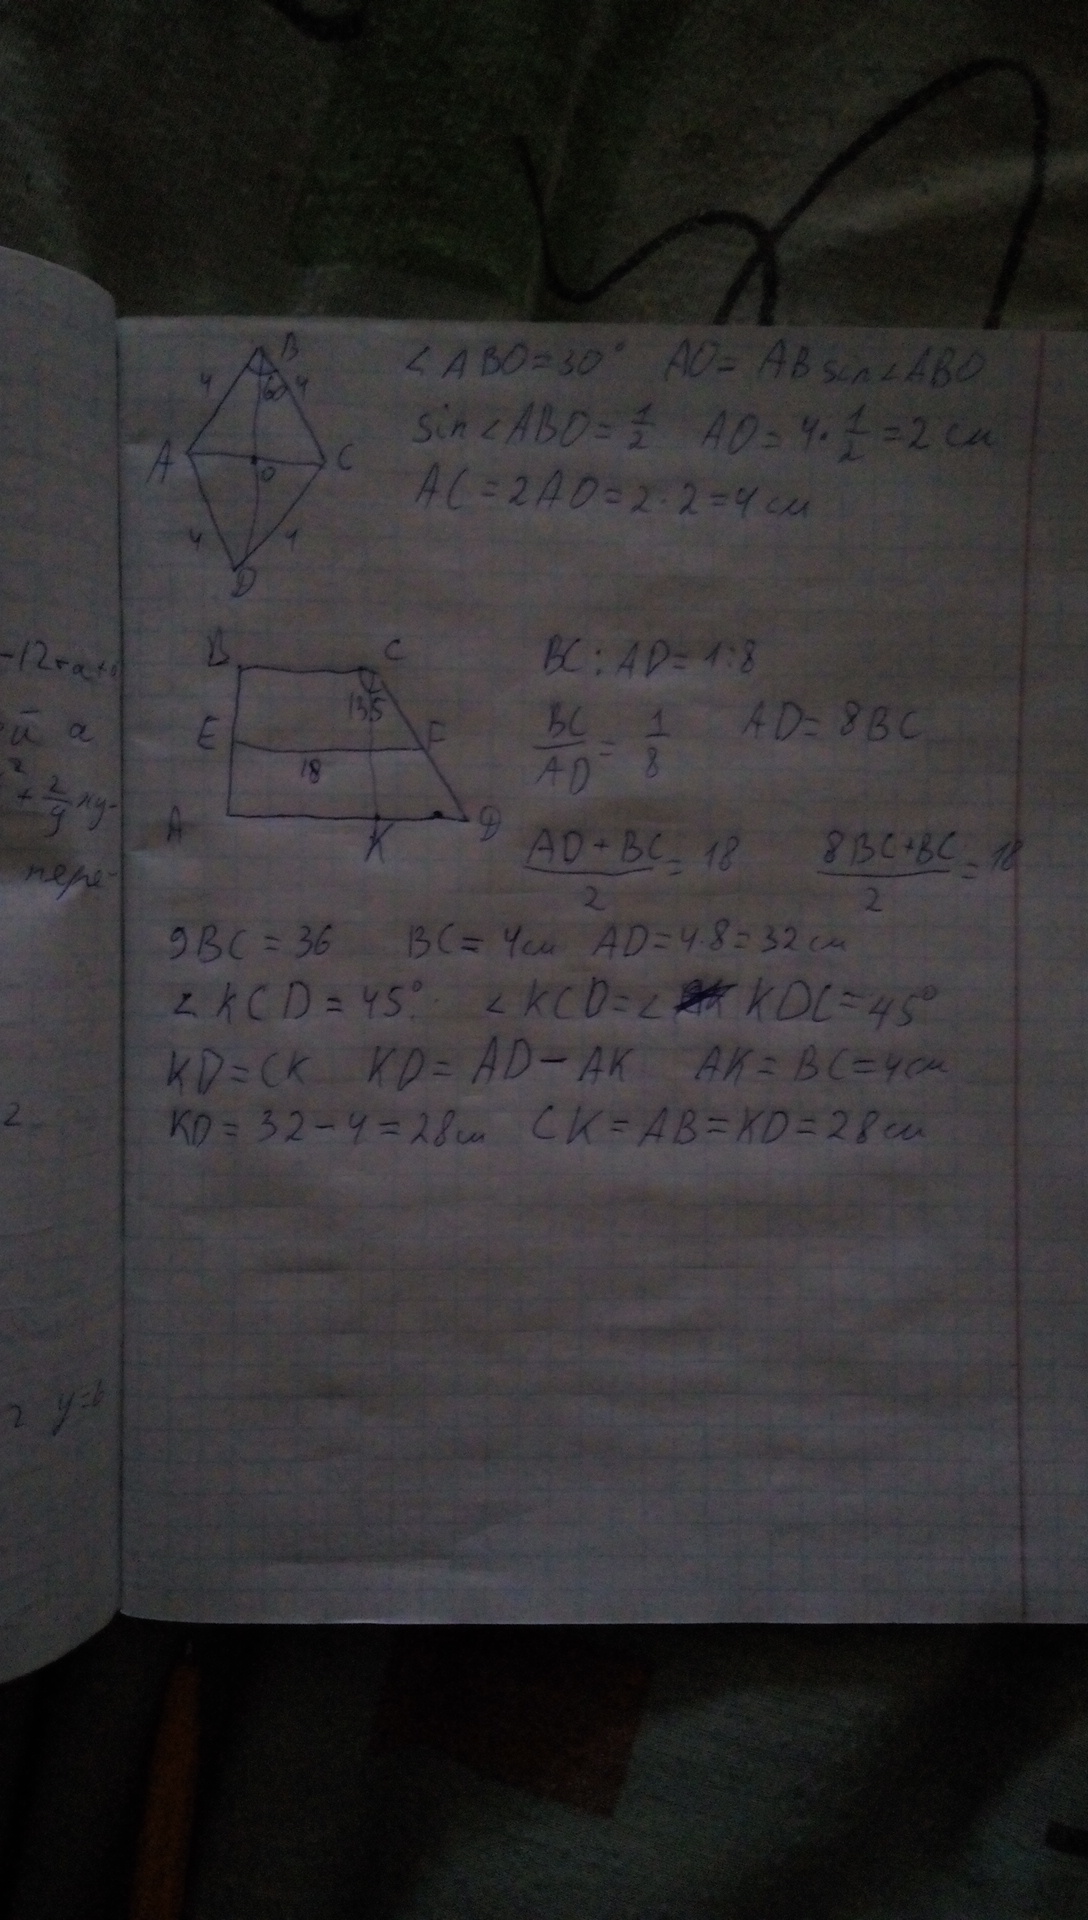 B
4
60
4
A
O
C
4
4
D
∠ABO=30° AO=AB sin∠ABO
sin∠ABO=1/2 AO=4·1/2=2 см
AC=2AO=2·2=4 см
B
C
135
E
F
18
A
K
D
BC:AD=1:8
BC/AD=1/8 AD=8BC
(AD+BC)/2=18 (8BC+BC)/2=18
9BC=36 BC=4см AD=4·8=32 см
∠KCD=45°. ∠KCD=∠KDC=45°
KD=CK KD=AD-AK AK=BC=4см
KD=32-4=28см CK=AB=KD=28см
-12+a+
й a
+2/9xy-
пере-
2
2 y=6